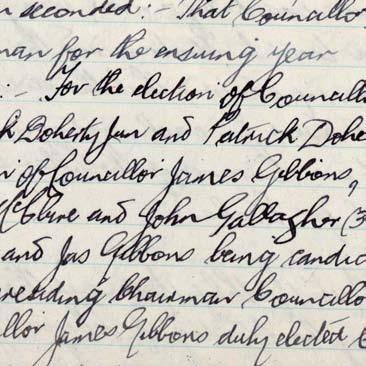 seconded :- That Councillor
man for the ensuing year
:- For the election of Councill
h Doherty Jun and Patrick Dohe
of Councillor James Gibbons,
McClure and John Gallagher (3
and Jas Gibbons being candid
presiding Chairman Councillo
illor James Gibbons duly elected